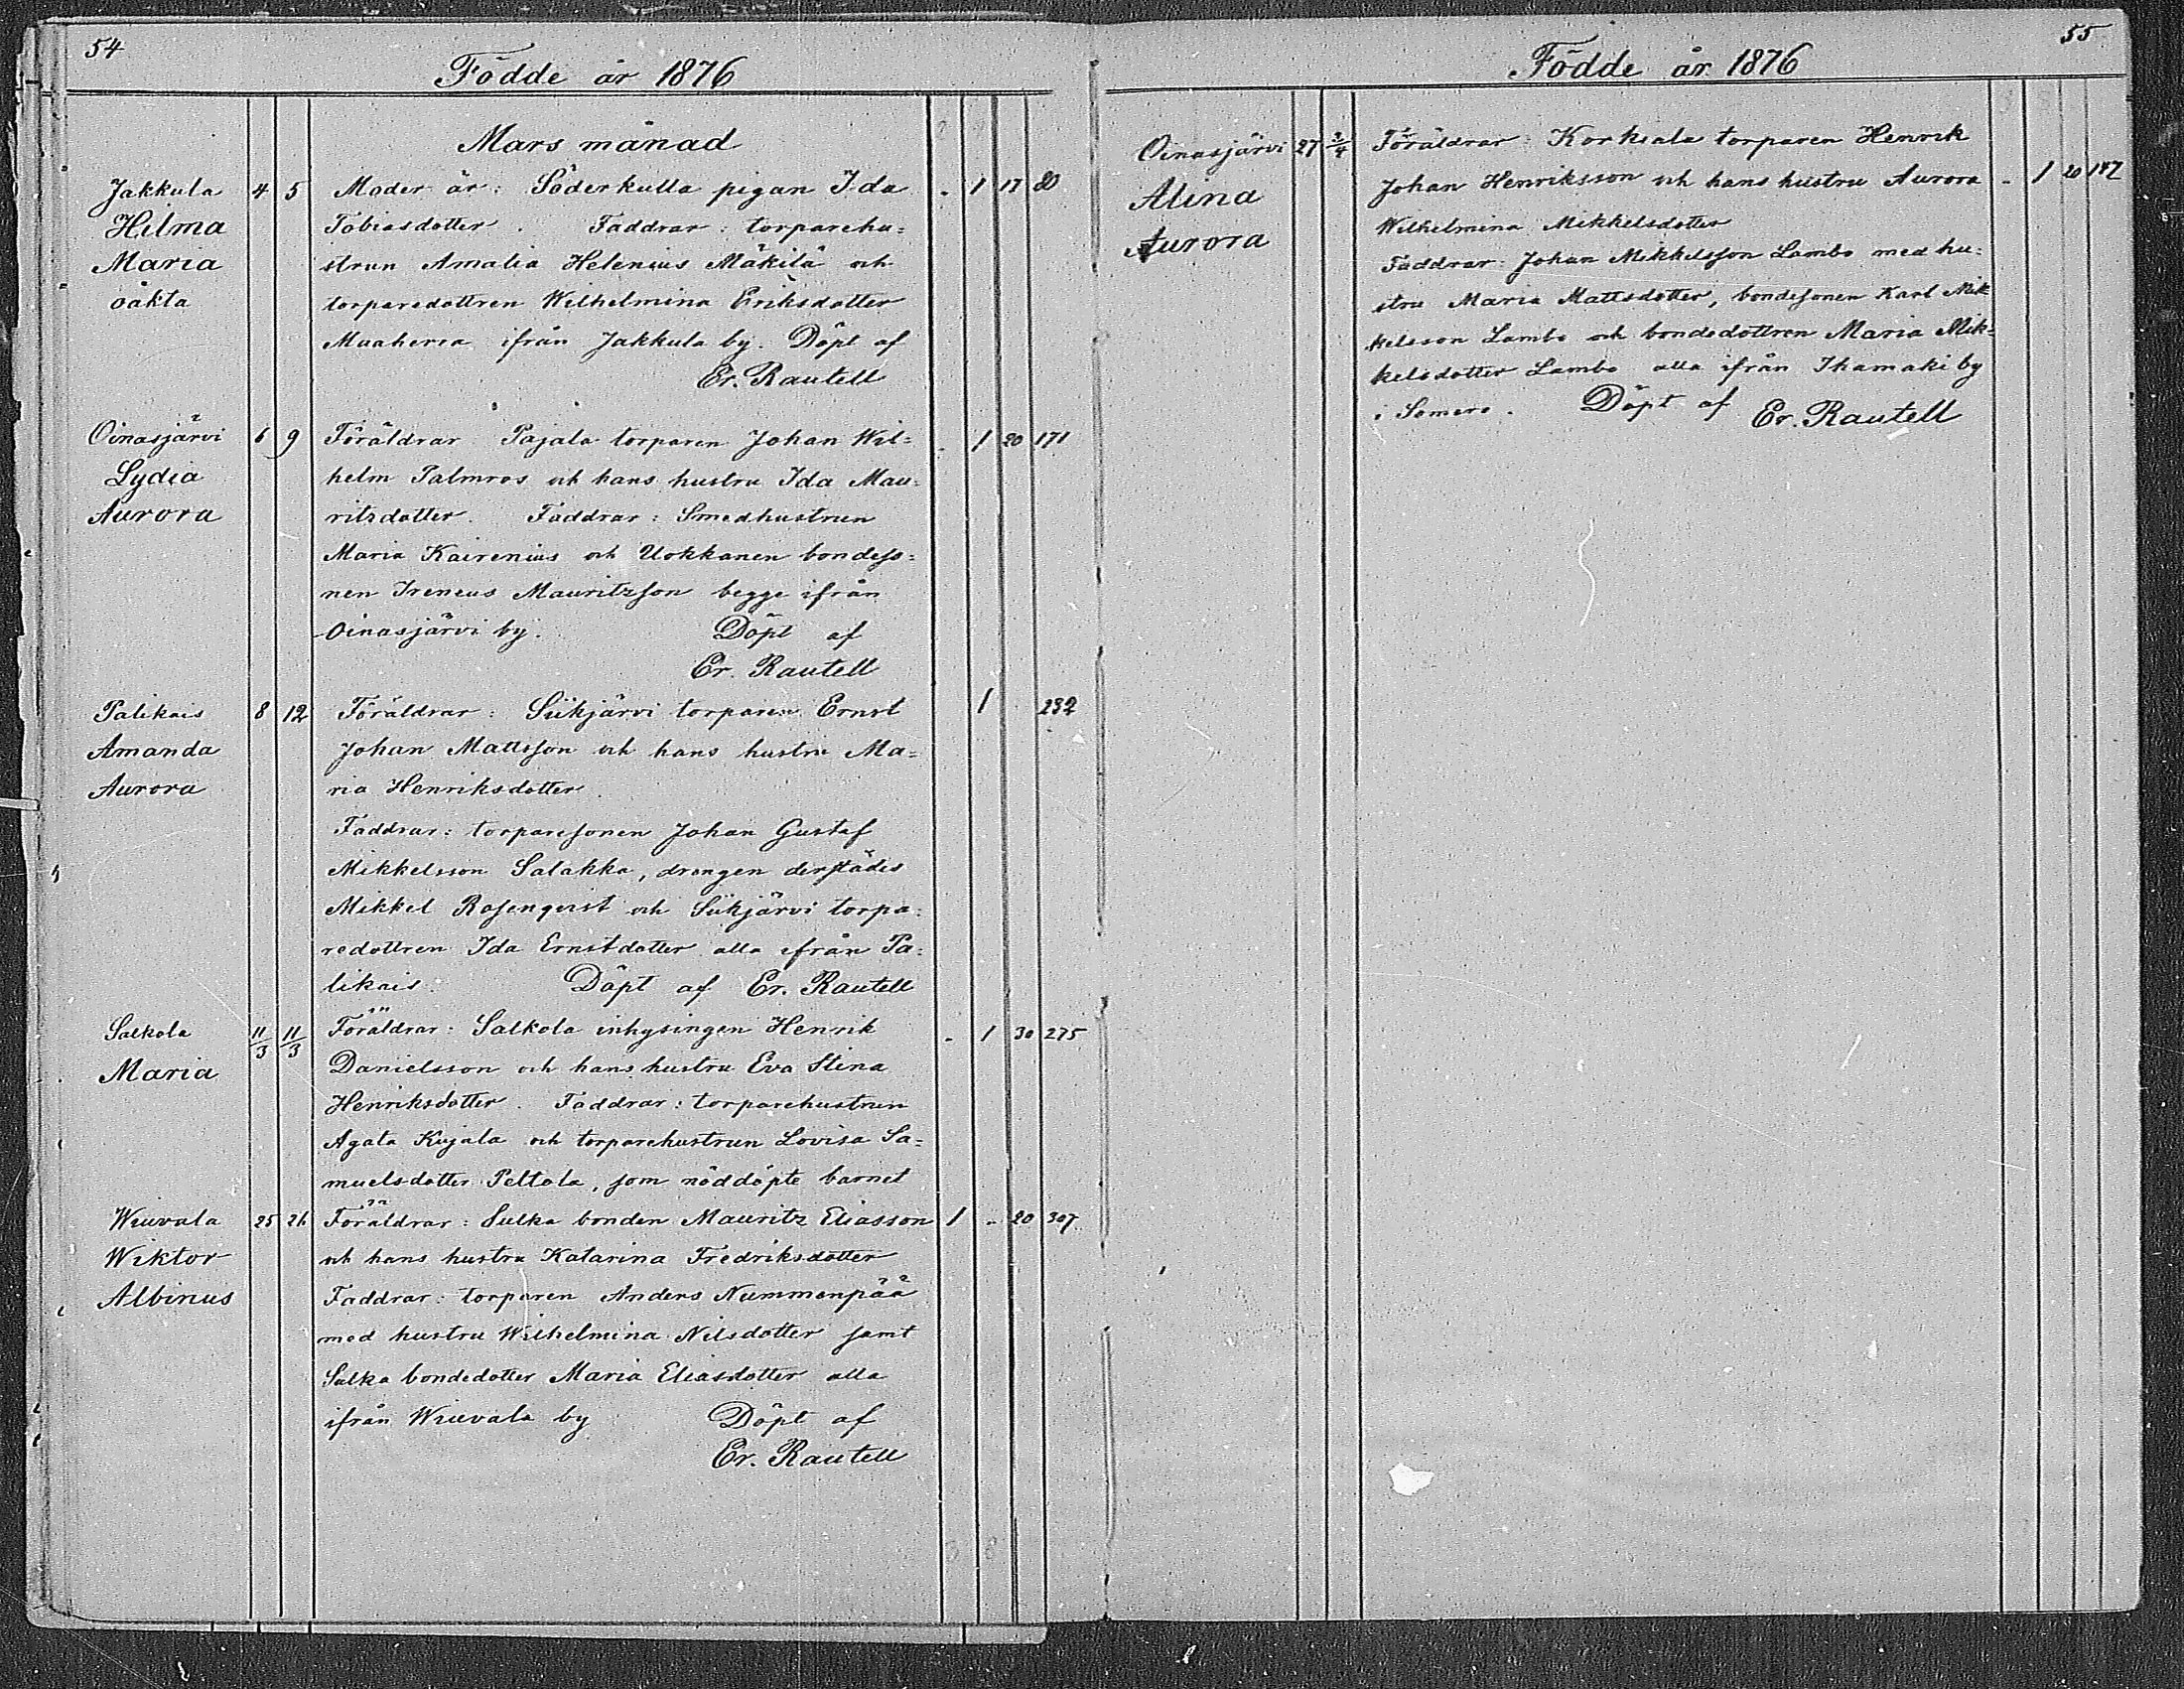 54
Födde år 1876
Mars månad
Jakkula 4 5 Moder är: Söderkulla pigan Ida - 1 17 80
Hilma Tobiasdotter. Faddrar: torparehu=
Maria strun Amalia Helenius Mäkilä och
oäkta torparedottren Wilhelmina Eriksdotter
Maaherra ifrån Jakkula by. Döpt af
Er. Rautell
Oinasjärvi 6 9 Föräldrar Pajala torparen Johan Wil= - 1 20 171
Lydia helm Palmros och hans hustru Ida Mau=
Aurora ritzdotter. Faddrar: Smedhustrun
Maria Kairenius och Uokkanen bondeso=
nen Ireneus Mauritzson begge ifrån
Oinasjärvi by. Döpt af
Er. Rautell
Palikais 8 12 Föräldrar: Siikjärvi torparen Ernst 1 232
Amanda Johan Mattsson och hans hustru Ma=
Aurora ria Henriksdotter.
Faddrar: torparesonen Johan Gustaf
Mikkelsson Salakka, drengen derstädes
Mikkel Rosenqvist och Siikjärvi torpa=
redottren Ida Ernstdotter alla ifrån Pa=
likais. Döpt af Er. Rautell
Salkola 11/3 11/3 Föräldrar: Salkola inhysingen Henrik - 1 30 275
Maria Danielsson och hans hustru Eva Stina
Henriksdotter. Faddrar: torparehustrun
Agata Kujala och torparehustrun Lovisa Sa=
muelsdotter Peltola, som nöddöpte barnet
Wiuvala 25 26 Föräldrar: Sulka bonden Mauritz Eliasson 1 - 20 307
Wiktor och hans hustru Katarina Fredriksdotter
Albinus Faddrar: torparen Anders Nummenpää
med hustru Wilhelmina Nilsdotter samt
Sulka bondedotter Maria Eliasdotter alla
ifrån Wiuvala by Döpt af
Er. Rautell
55
Födde år 1876
Oinasjärvi 27 2/4 Föräldrar: Korksala torparen Henrik
Alina Johan Henriksson och hans hustru Aurora - 1 20 187
Aurora Wilhelmina Mikkelsdotter
Faddrar: Johan Mikkelsson Lambo med hu=
stru Maria Mattsdotter, bondesonen Karl Mik=
kelsson Lambo och bondedottren Maria Mik=
kelsdotter Lambo alla ifrån Ihamaki by
i Somero. Döpt af Er. Rautell